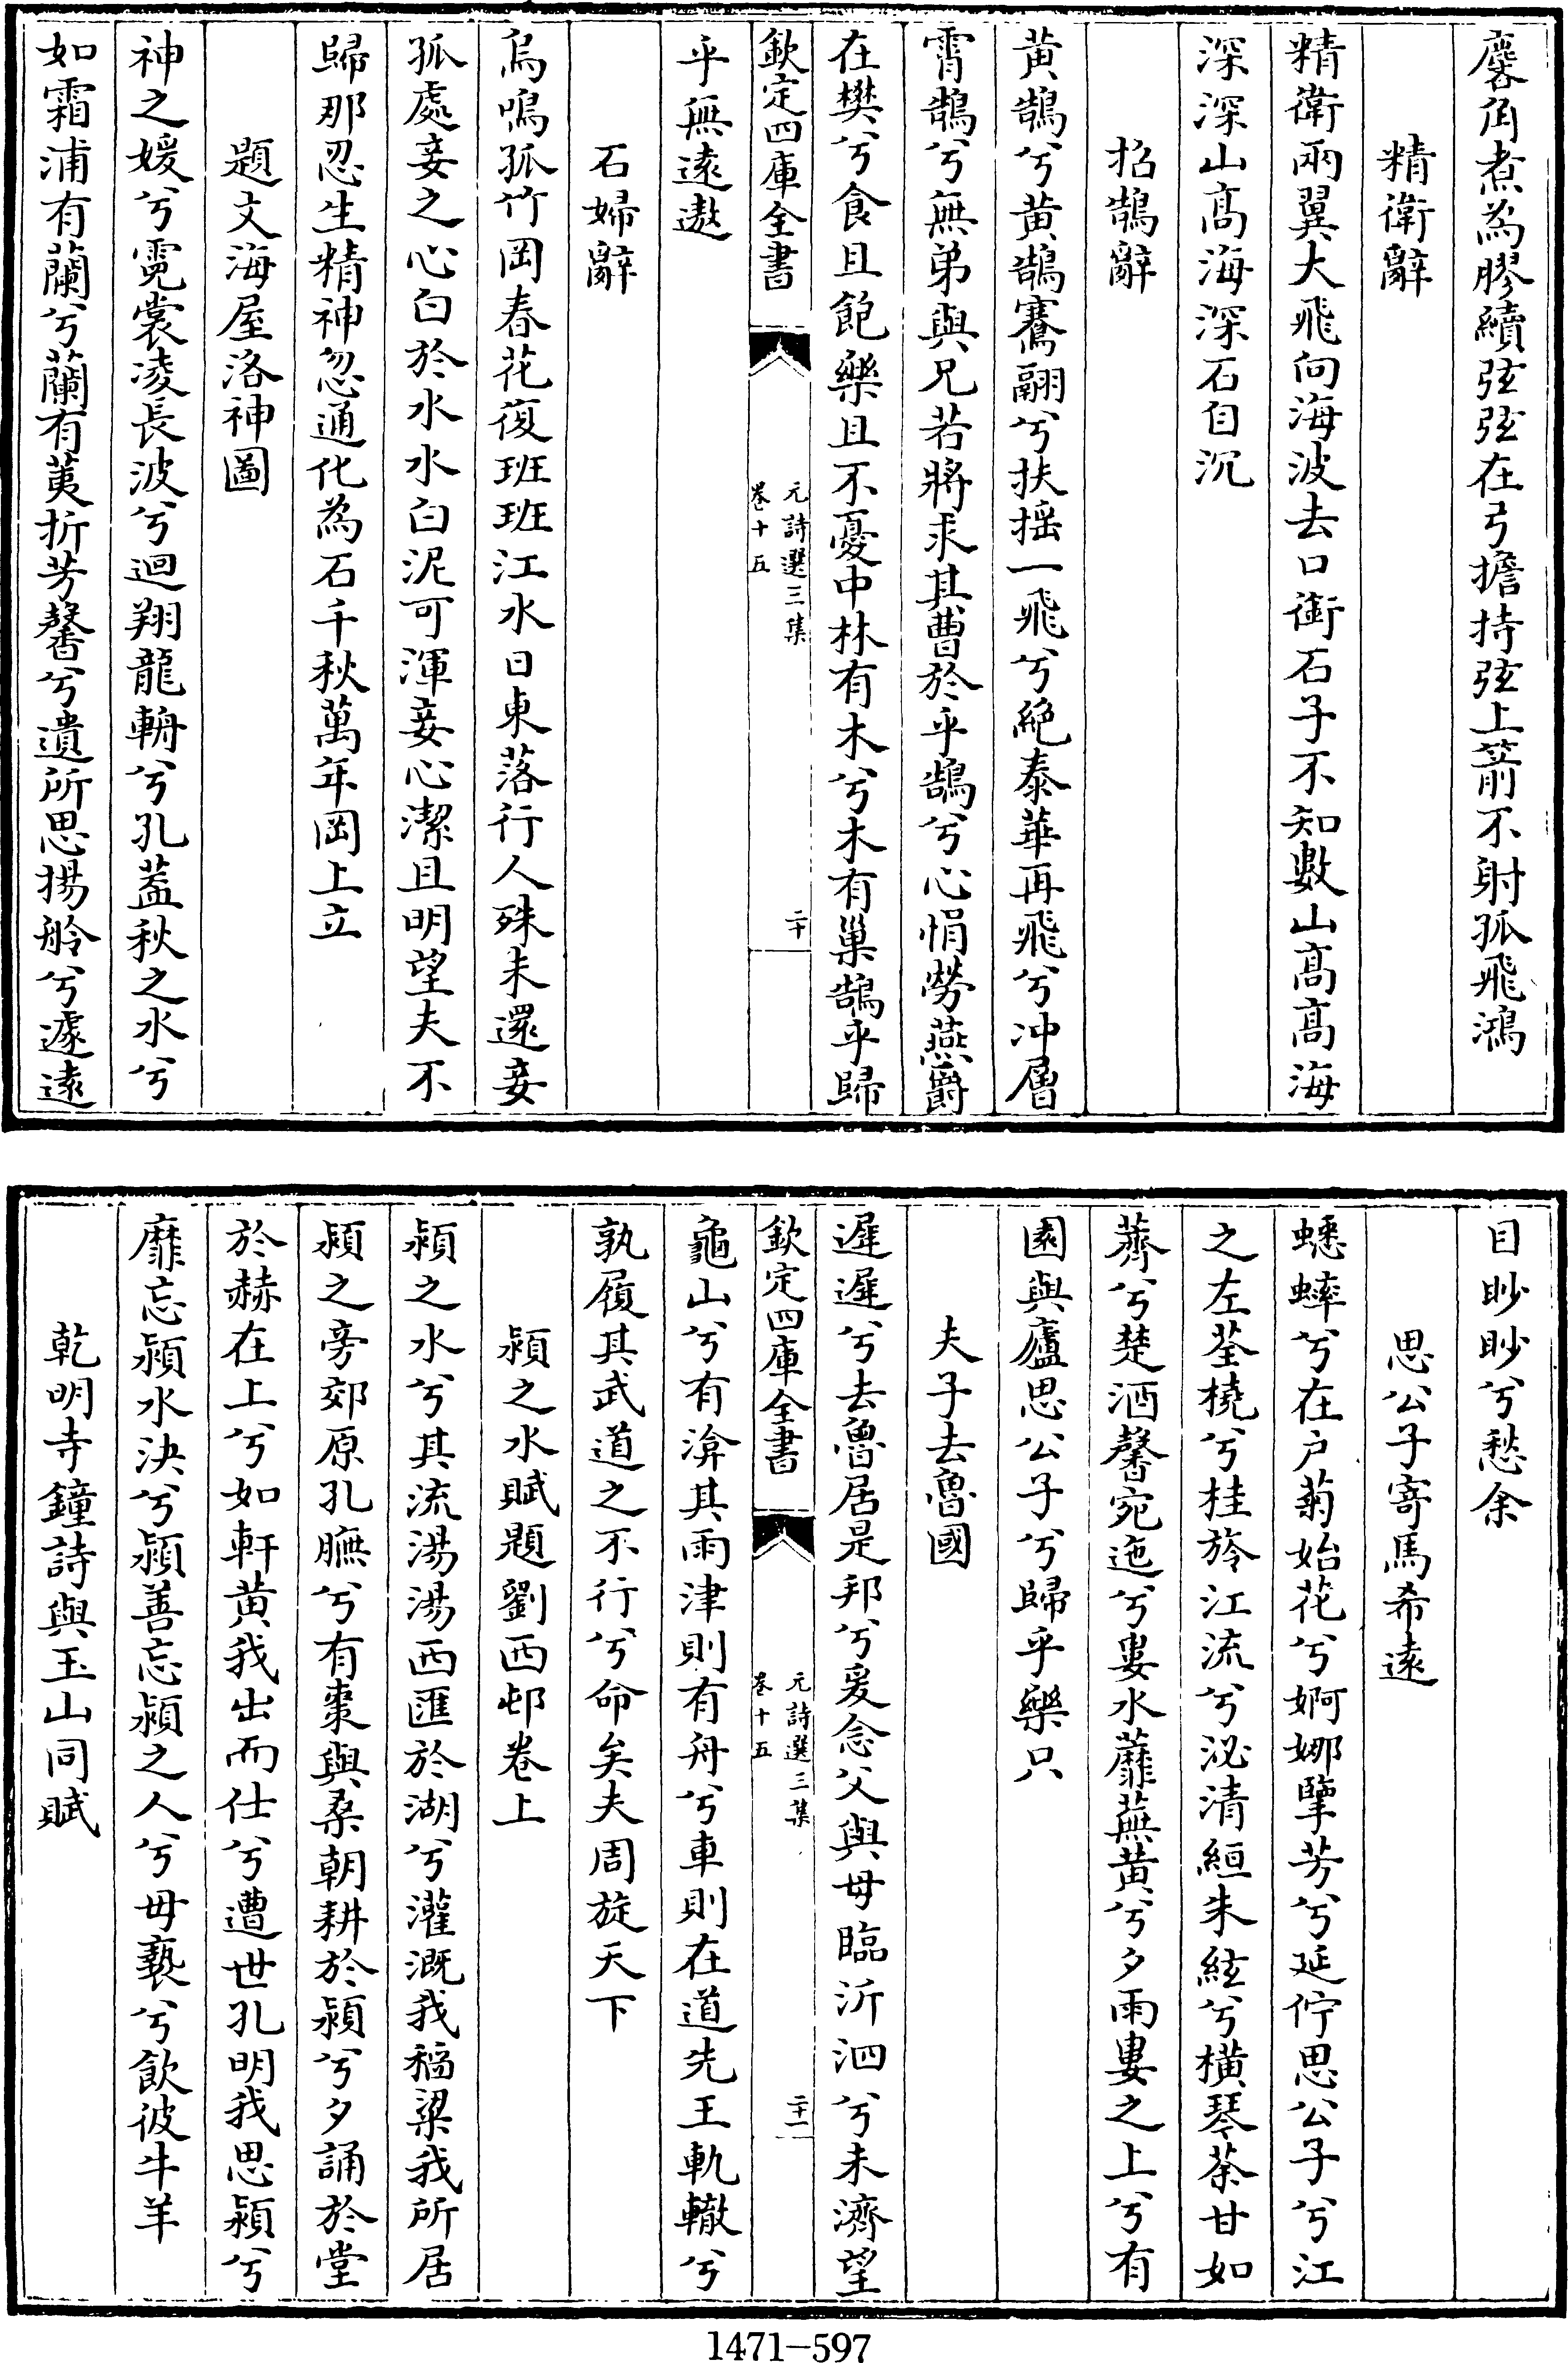 麐角煮為膠續弦弦在弓擔持弦上箭不射孤飛鴻
精衛辭
精衛兩翼大飛向海波去口銜石子不知數山髙髙海
深深山髙海深石自沉
招鵠辭
黄鵠兮黄鵠騫翮兮扶揺一飛兮絶泰華再飛兮冲層
霄鵠兮無弟與兄若將求其曹於乎鵠兮心悁勞燕爵
在樊兮食且飽樂且不憂中林有木兮木有巢鵠乎歸
欽定四庫全書
元詩選三集
卷十五
二十
乎無逺遨
石婦辭
烏鳴孤竹岡春花復班班江水日東落行人殊未還妾
孤處妾之心白於水水白泥可渾妾心潔且明望夫不
歸那忍生精神忽通化為石千秋萬年岡上立
題文海屋洛神圖
神之媛兮霓裳凌長波兮迴翔龍輈兮孔蓋秋之水兮
如霜浦有蘭兮蘭有荑折芳馨兮遺所思揚舲兮遽逺
目眇眇兮愁余
思公子寄馬希逺
蟋蟀兮在户菊始花兮婀娜擥芳兮延佇思公子兮江
之左荃橈兮桂旍江流兮泌清絙朱絃兮横琴荼甘如
薺兮楚酒馨宛迤兮婁水蘼蕪黄兮夕雨婁之上兮有
園與廬思公子兮歸乎樂只
夫子去魯國
遲遲兮去魯居是邦兮爰念父與母臨沂泗兮未濟望
欽定四庫全書
元詩選三集
卷十五
二十一
龜山兮有渰其雨津則有舟兮車則在道先王軌轍兮
孰履其武道之不行兮命矣夫周旋天下
潁之水賦題劉西邨卷上
潁之水兮其流湯湯西匯於湖兮灌溉我稻粱我所居
潁之旁郊原孔膴兮有棗與桑朝耕於潁兮夕誦於堂
於赫在上兮如軒黄我出而仕兮遭世孔明我思潁兮
靡忘潁水決兮潁善忘潁之人兮毋褻兮飲彼牛羊
乾明寺鐘詩與玉山同賦
1471-597